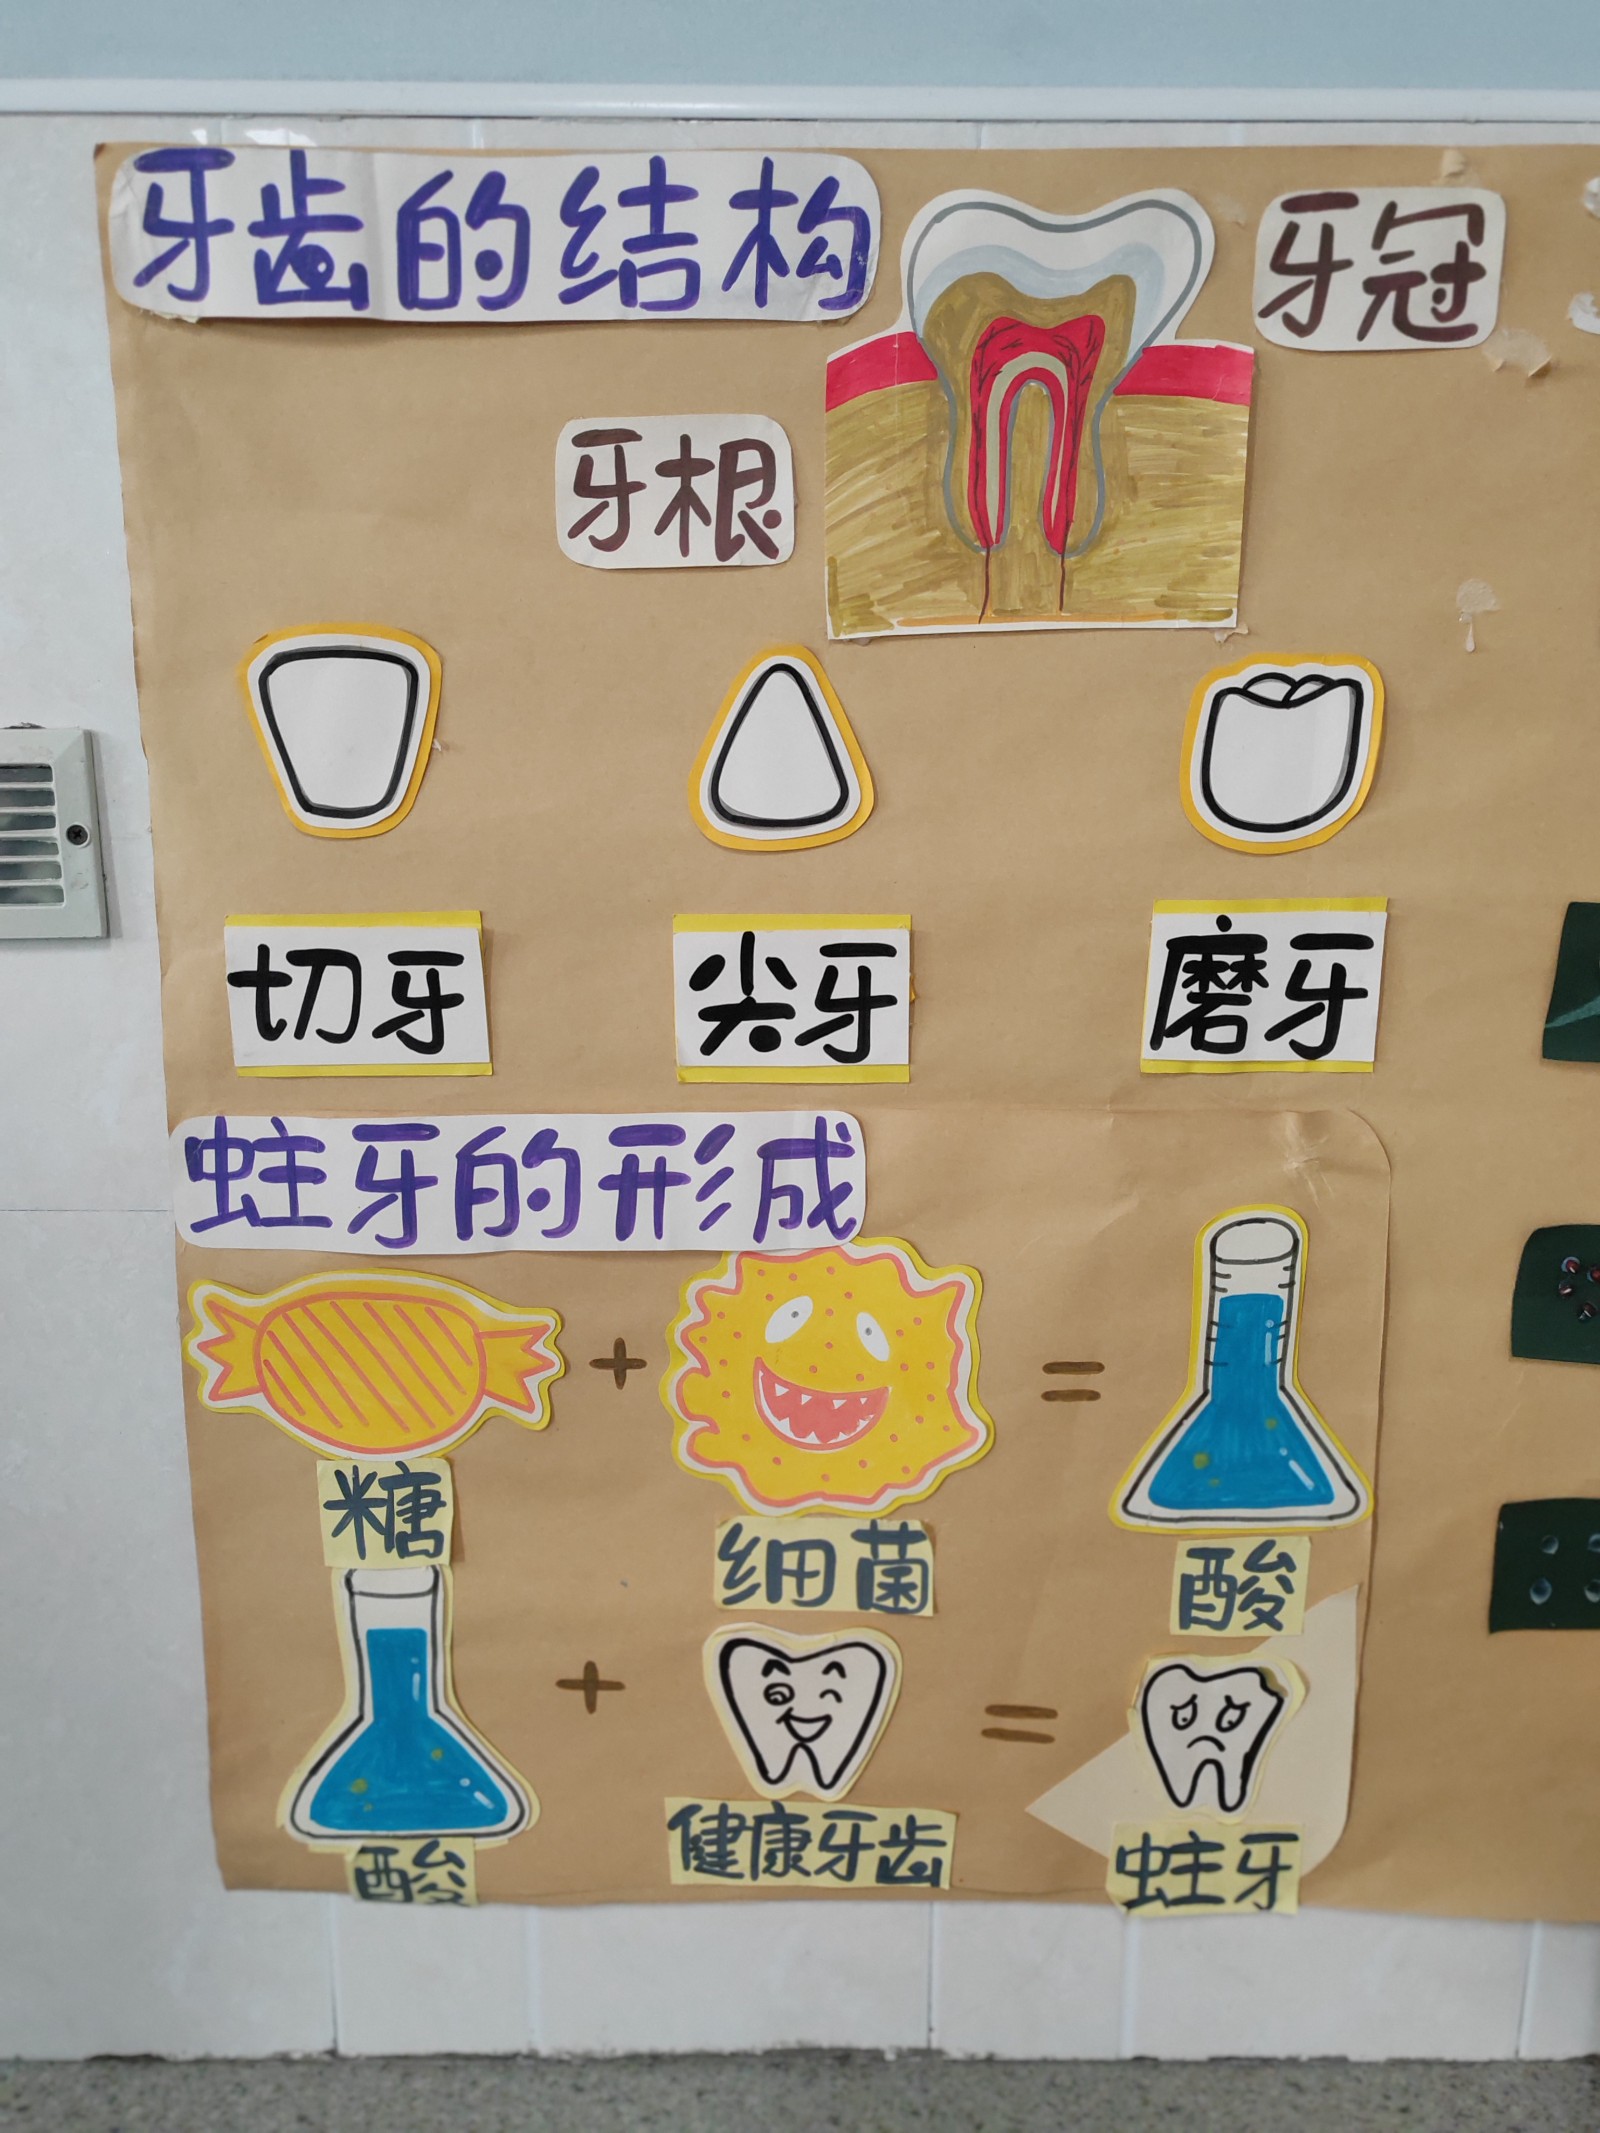 牙齿的结构
牙冠
牙根
切牙 尖牙 磨牙
蛀牙的形成
+ =
糖 细菌 酸
+ =
酸 健康牙齿 蛀牙